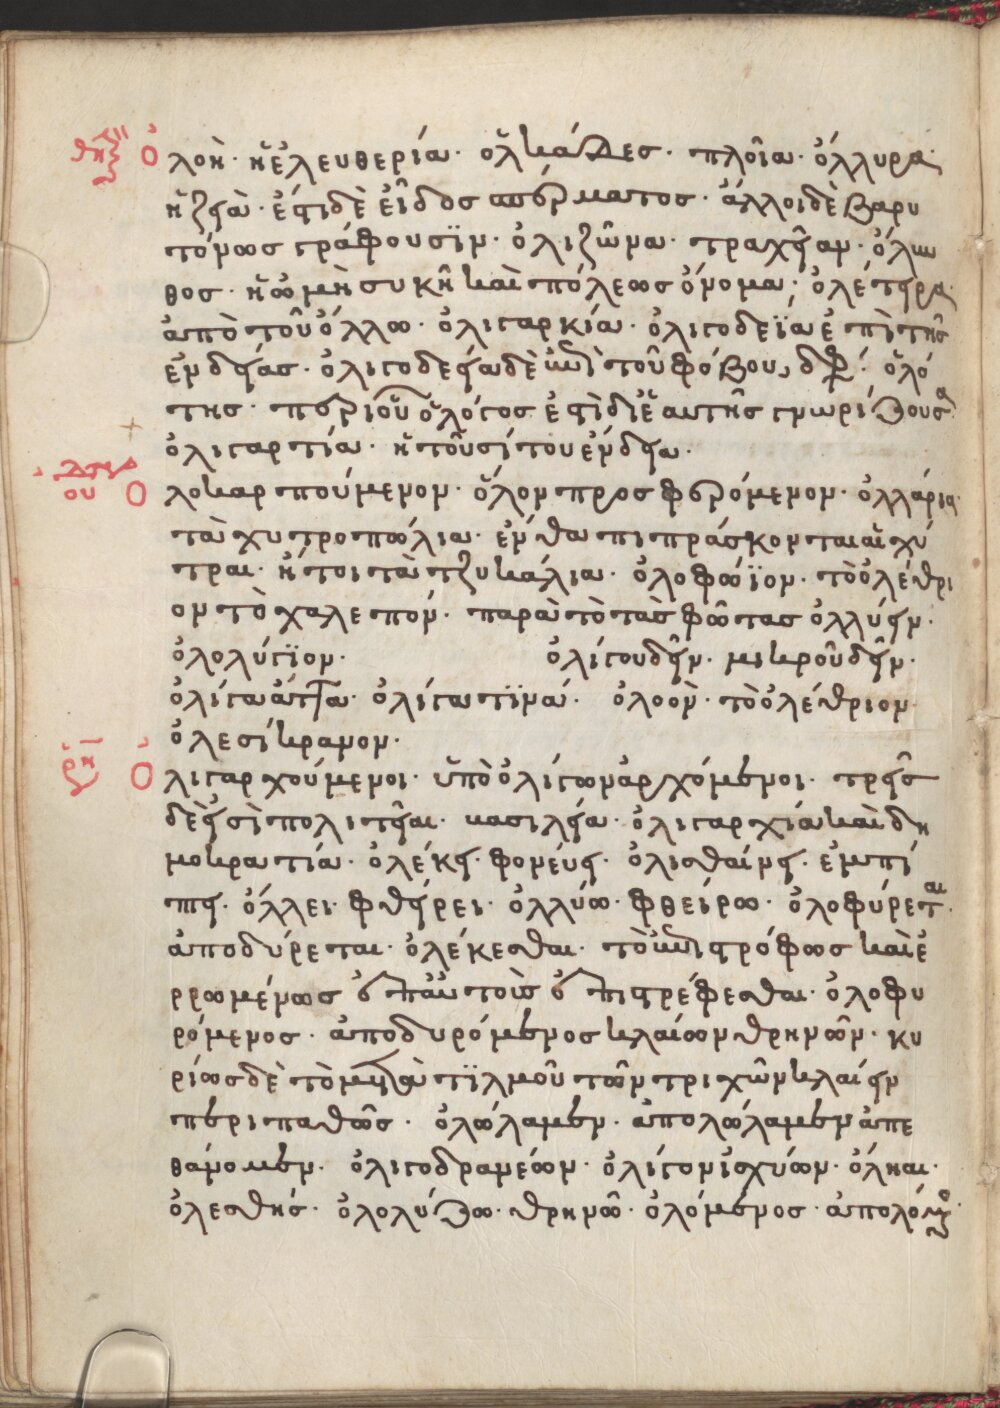 θηλ Ὀλοὴ· ἡ ἐλευθερία· ὁλκάδες· πλοῖα· ὄλλυρα·
ἡ ζειὰ· ἔστι δὲ εἶδος σπέρματος· ἄλλοι δὲ βαρυ
τόνως γράφουσϊν· ὀλιζῶνα· τραχεῖαν· ὄλυν
θος· ἡ ὠμὴ συκῆ καὶ πόλεως ὄνομα· ὀλέτειρα·
ἀπὸ τοῦ ὄλλω· ὀλιγαρκία· ὀλιγοδεΐα ἐπὶ τῆς
ἐνδείας· ὀλιγοδεεία δὲ ἐπὶ τοῦ φόβου, δφ· ὁλό
της· περὶ οὗ ὁ λόγος ἐστὶ δι' ἑαυτῆς γνωρίζουσα·
ὀλιγαρτία· ἡ τοῦ σίτου ἔνδεια·
ου Ὀλοκαρπούμενον· ὅλον προσφερόμενον· ὀλλάρια·
τὰ χυτροπώλια· ἔνθα πιπράσκονται αἱ χύ
τραι· ἤτοι τὰ τζυκάλια· ὀλοφώϊον· τὸ ὀλέθρι
ον τὸ χαλεπόν· παρὰ τὸ τὰς φῶτας ὀλλύειν·
ὀλολύγϊον· ὀλίγου δεῖν· μικροῦ δεῖν·
ὀλίγα ἄττα· ὀλίγα τϊνά· ὀλοόν· τὸ ὀλέθριον·
ὀλεσίκρανον·
ῥη Ὀλιγαρχούμενοι· ὑπὸ ὀλίγων ἀρχόμενοι· τρεῖς
δὲ εἰσὶ πολιτεῖαι· βασιλεία· ὀλιγαρχία καὶ δη
μοκρατία· ὀλέκει· φονεύει· ὀλισθαίνει· ἐμπί
πτει· ὄλλει· φθείρει· ὀλλύω· φθείρω· ὀλοφύρεται·
ἀποδύρεται· ὀλέκεσθαι· τὸ ἐπιστρόφως καὶ ἐ
ρρωμένως ἐπ' αὐτοῖς ἐπιστρέφεσθαι· ὀλοφυ
ρόμενος· ἀποδυρόμενος κλαίων θρηνῶν· κυ
ρίως δὲ τὸ μετὰ τϊλμοῦ τῶν τριχῶν κλαίειν
περιπαθῶς· ὀλώλαμεν· ἀπολώλαμεν ἀπε
θάνομεν· ὀλιγοδρανέων· ὀλίγον ἰσχύων· ὄληαι·
ὀλεσθῇς· ὀλολύζω· θρηνῶ· ὀλόμενος· ἀπολόμενος·